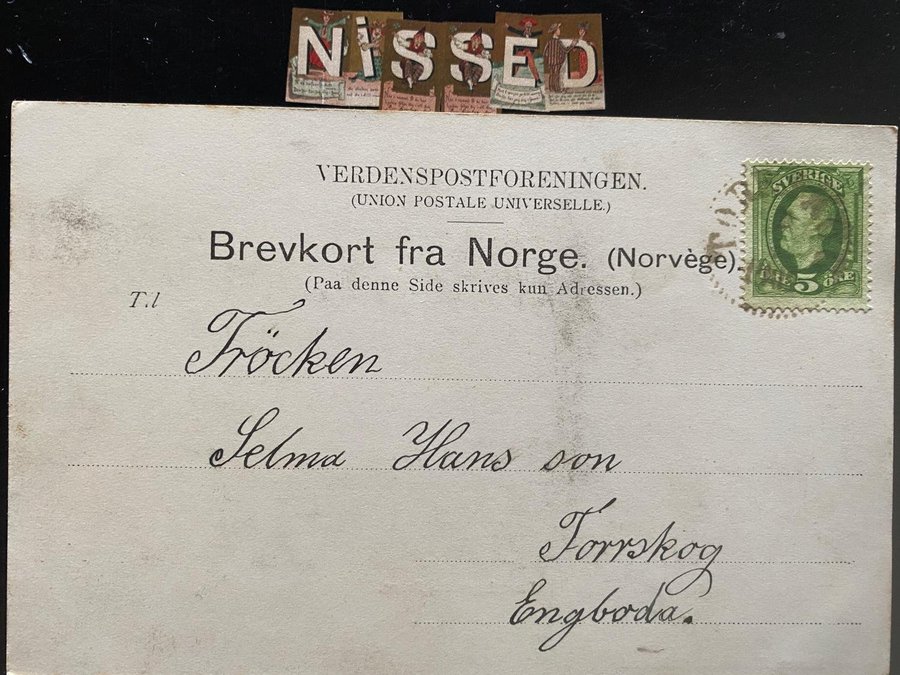 NiSSED
VERDENSPOSTFORENINGEN.
(UNION POSTALE UNIVERSELLE.)
Brevkort fra Norge. (Norvège).
(Paa denne Side skrives kun Adressen.)
T.l
SVERIGE
5 ÖRE
Fröcken
Selma Hans son
Torrskog
Engboda.